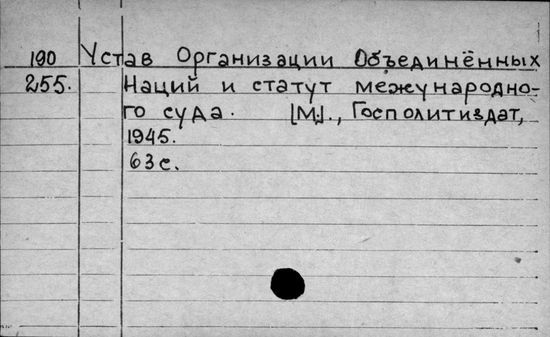 190 Устав Организации Объединённых
255. Наций и статут международно-
го суда. [М.]., Госполитиздат,
1945.
63 с.